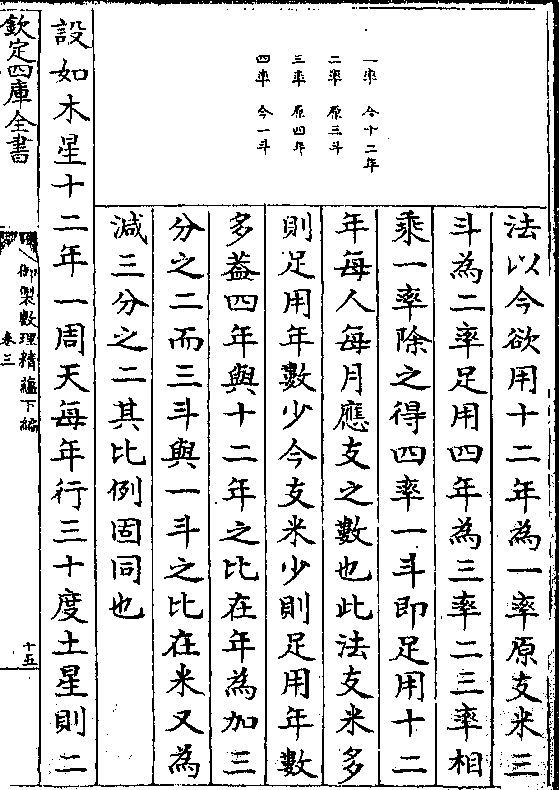 一率　今十二年
二率　原三斗
三率　原四年
四率　今一斗
法以今欲用十二年為一率原支米三
斗為二率足用四年為三率二三率相
乘一率除之得四率一斗即足用十二
年每人每月應支之數也此法支米多
則足用年數少今支米少則足用年數
多葢四年與十二年之比在年為加三
分之二而三斗與一斗之比在米又為
減三分之二其比例固同也
設如木星十二年一周天每年行三十度土星則二
欽定四庫全書
御製數理精蘊下編
卷三
十五